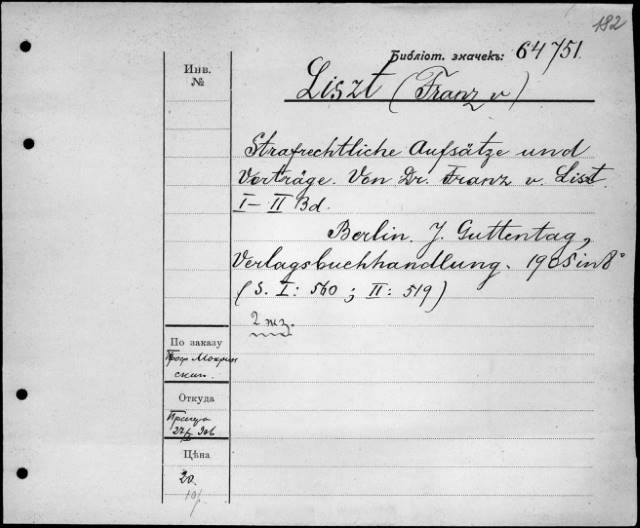 182
Библіот. значекъ: 64751
Инв.
№
Liszt (Franz v)
Strafrechtliche Aufsätze und
Vorträge. Von Dr. Franz v. Liszt.
I–II Bd.
Berlin. J. Guttentag,
Verlagsbuchhandlung. 1905 in 8°
(S. I: 560 ; II: 519)
2 экз.
По заказу
Проф Мокрин
скаго.
Откуда
Цѣна
20.